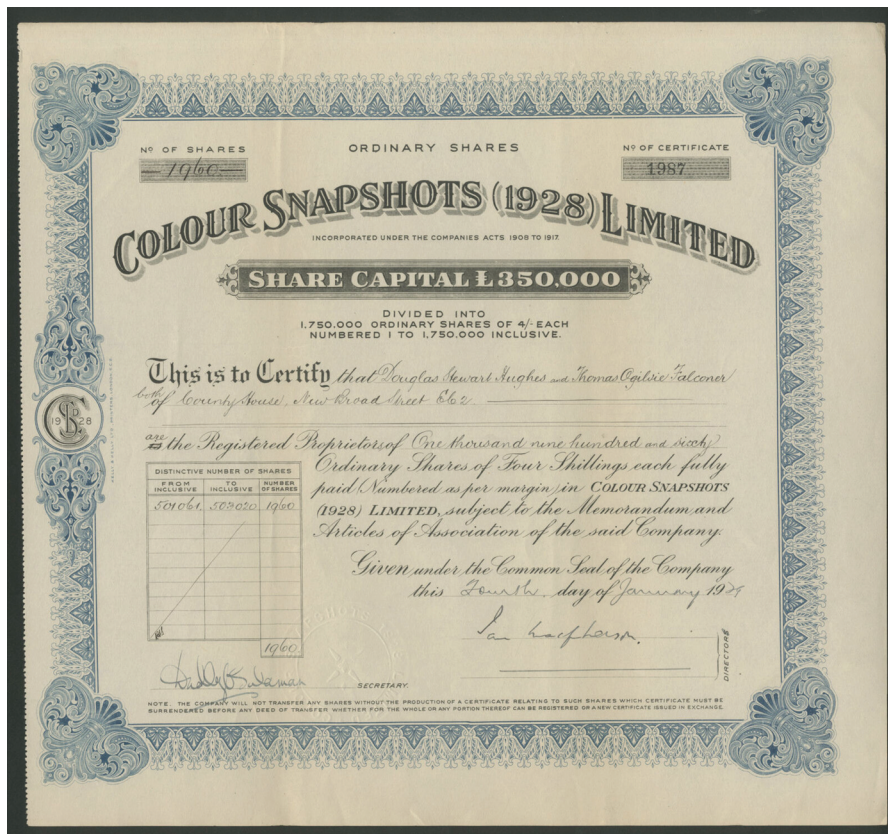 Nº OF SHARES
ORDINARY SHARES
Nº OF CERTIFICATE
1960
1987
COLOUR SNAPSHOTS (1928) LIMITED
INCORPORATED UNDER THE COMPANIES ACTS 1908 TO 1917.
SHARE CAPITAL £350,000
DIVIDED INTO
1,750,000 ORDINARY SHARES OF 4/- EACH
NUMBERED 1 TO 1,750,000 INCLUSIVE.
This is to Certify that Douglas Stewart Hughes and Thomas Ogilvie Falconer
both of County House, New Broad Street EC2
are the Registered Proprietors of One thousand nine hundred and sixty
Ordinary Shares of Four Shillings each fully
paid (Numbered as per margin) in COLOUR SNAPSHOTS
(1928) LIMITED, subject to the Memorandum and
Articles of Association of the said Company.
DISTINCTIVE NUMBER OF SHARES
FROM INCLUSIVE TO INCLUSIVE NUMBER OF SHARES
501061 503020 1960
1960
Given under the Common Seal of the Company
this Fourth day of January 1929
Ian Macpherson
DIRECTORS
SECRETARY.
NOTE. THE COMPANY WILL NOT TRANSFER ANY SHARES WITHOUT THE PRODUCTION OF A CERTIFICATE RELATING TO SUCH SHARES WHICH CERTIFICATE MUST BE
SURRENDERED BEFORE ANY DEED OF TRANSFER WHETHER FOR THE WHOLE OR ANY PORTION THEREOF CAN BE REGISTERED OR A NEW CERTIFICATE ISSUED IN EXCHANGE.
19 CSL 28